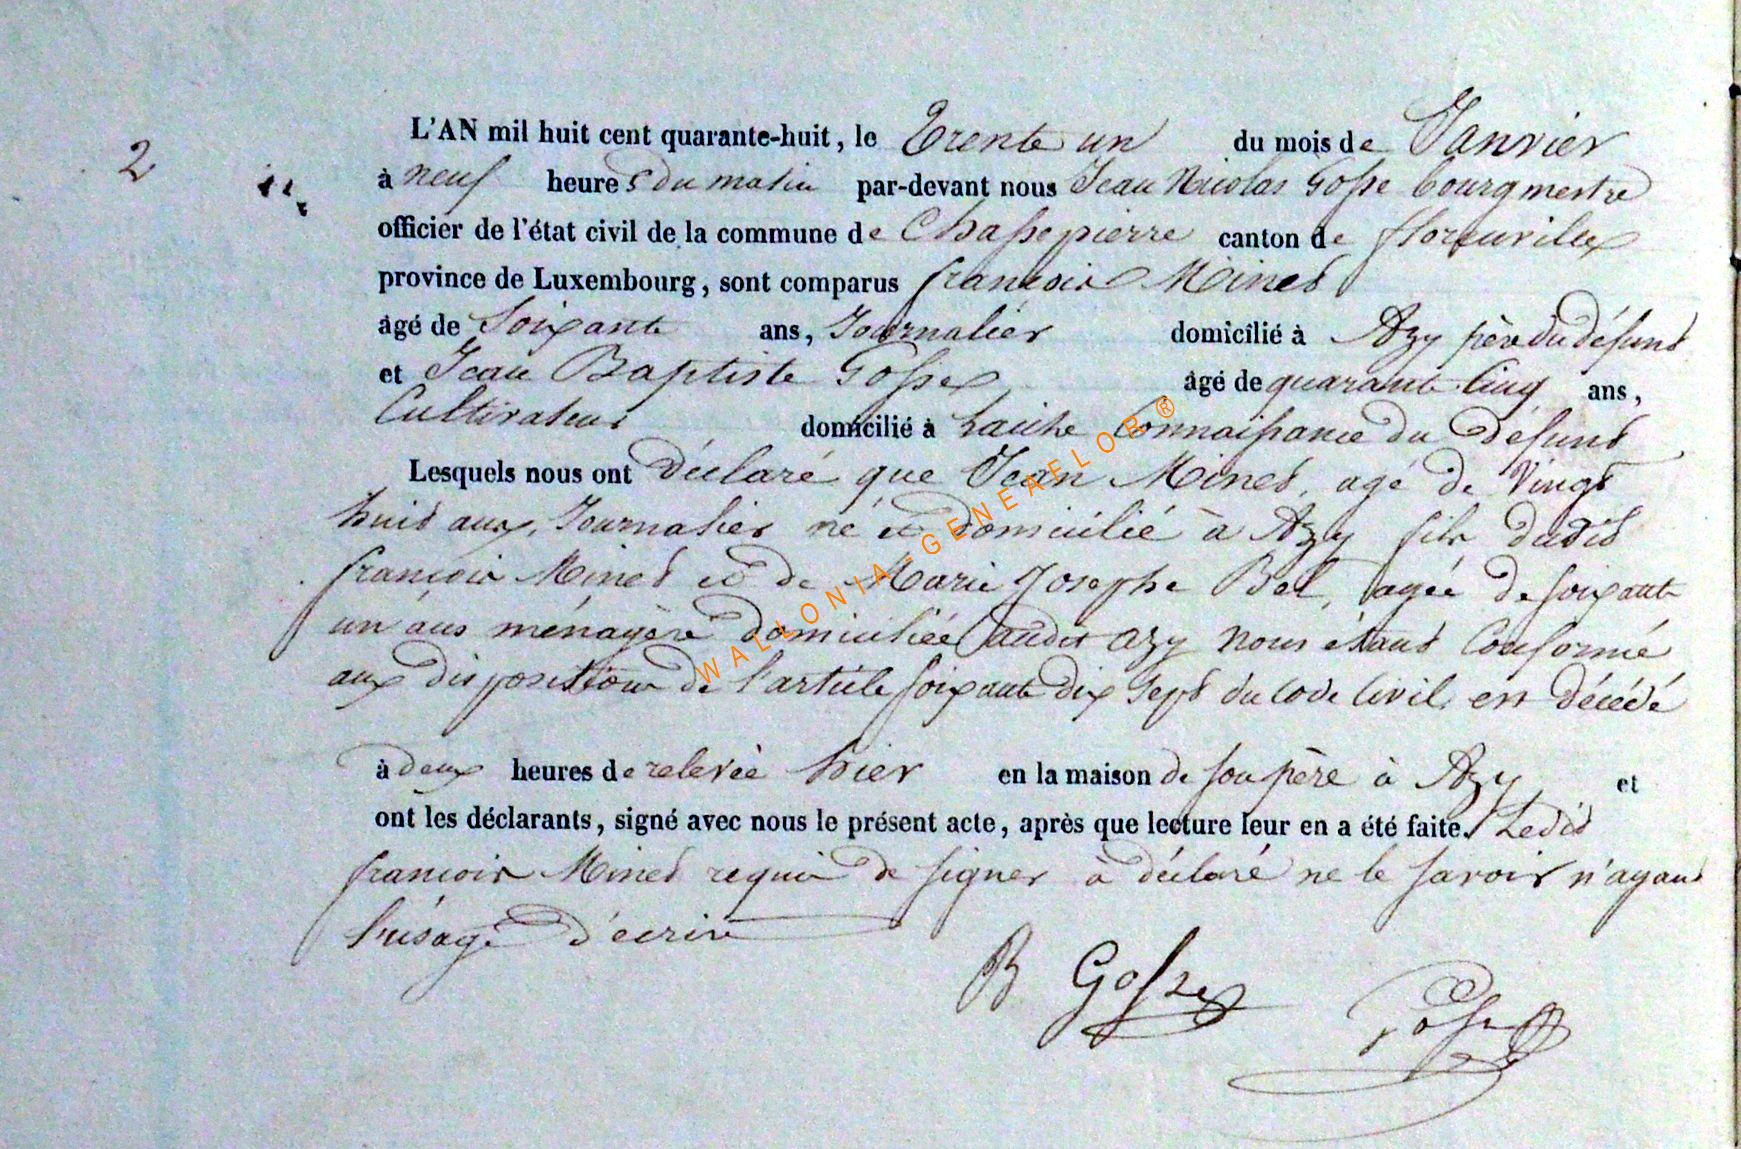 2
L'AN mil huit cent quarante-huit, le Trente un du mois de Janvier
à neuf heures du matin par-devant nous Jean Nicolas Gosse bourgmestre
officier de l'état civil de la commune de Chassepierre canton de florenville
province de Luxembourg, sont comparus françois Minet
âgé de Soixante ans, Journalier domicilié à Azy père du défunt
et Jean Baptiste Gosse âgé de quarante Cinq ans,
Cultivateur domicilié à Laiche Connaissance du défunt
Lesquels nous ont déclaré que Jean Minet, agé de Vingt
huit ans, Journalier né et domicilié à Azy fils dudit
françois Minet et de Marie Josephe Bel, agée de soixante
un ans ménagère domiciliée audit azy nous étant Conformé
aux dispositions de l'article soixante dix sept du code Civil, est décédé
à deux heures de relevée hier en la maison de son père à Azy et
ont les déclarants, signé avec nous le présent acte, après que lecture leur en a été faite. Ledit
françois Minet requis de signer à déclaré ne le savoir n'ayant
l'usage d'écrire
B Gosse Gosse
WALLONIA GENEAELOR ®